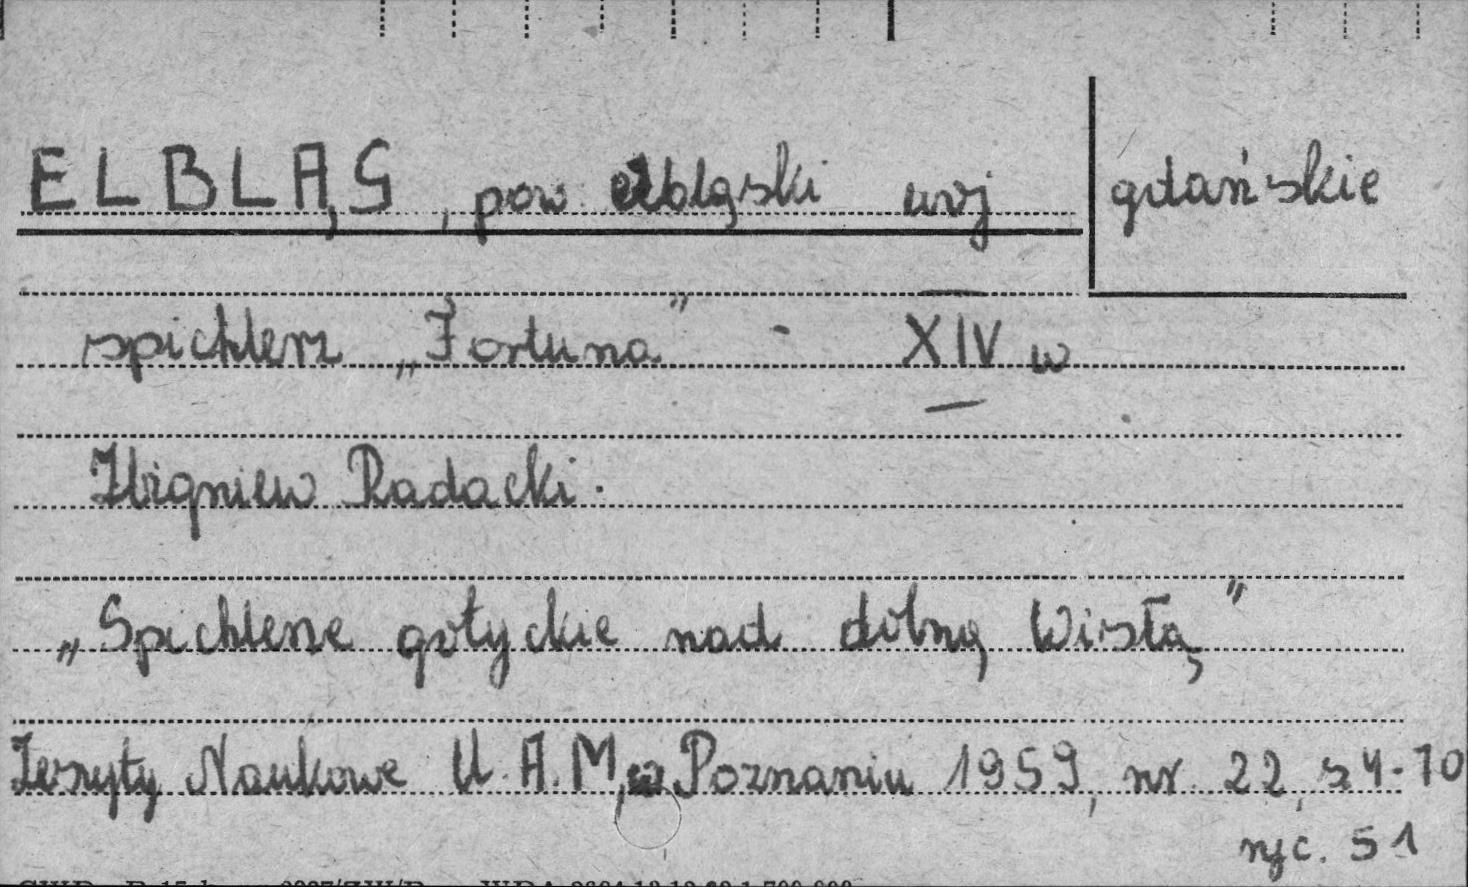 ELBLĄG, pow. elbląski woj gdańskie
spichlerz „Fortuna" - XIV w
Zbigniew Radacki.
„Spichlerze gotyckie nad dolną Wisłą"
Zeszyty Naukowe U.A.M, w Poznaniu 1959, nr. 22, s 4-70
ryc. 51